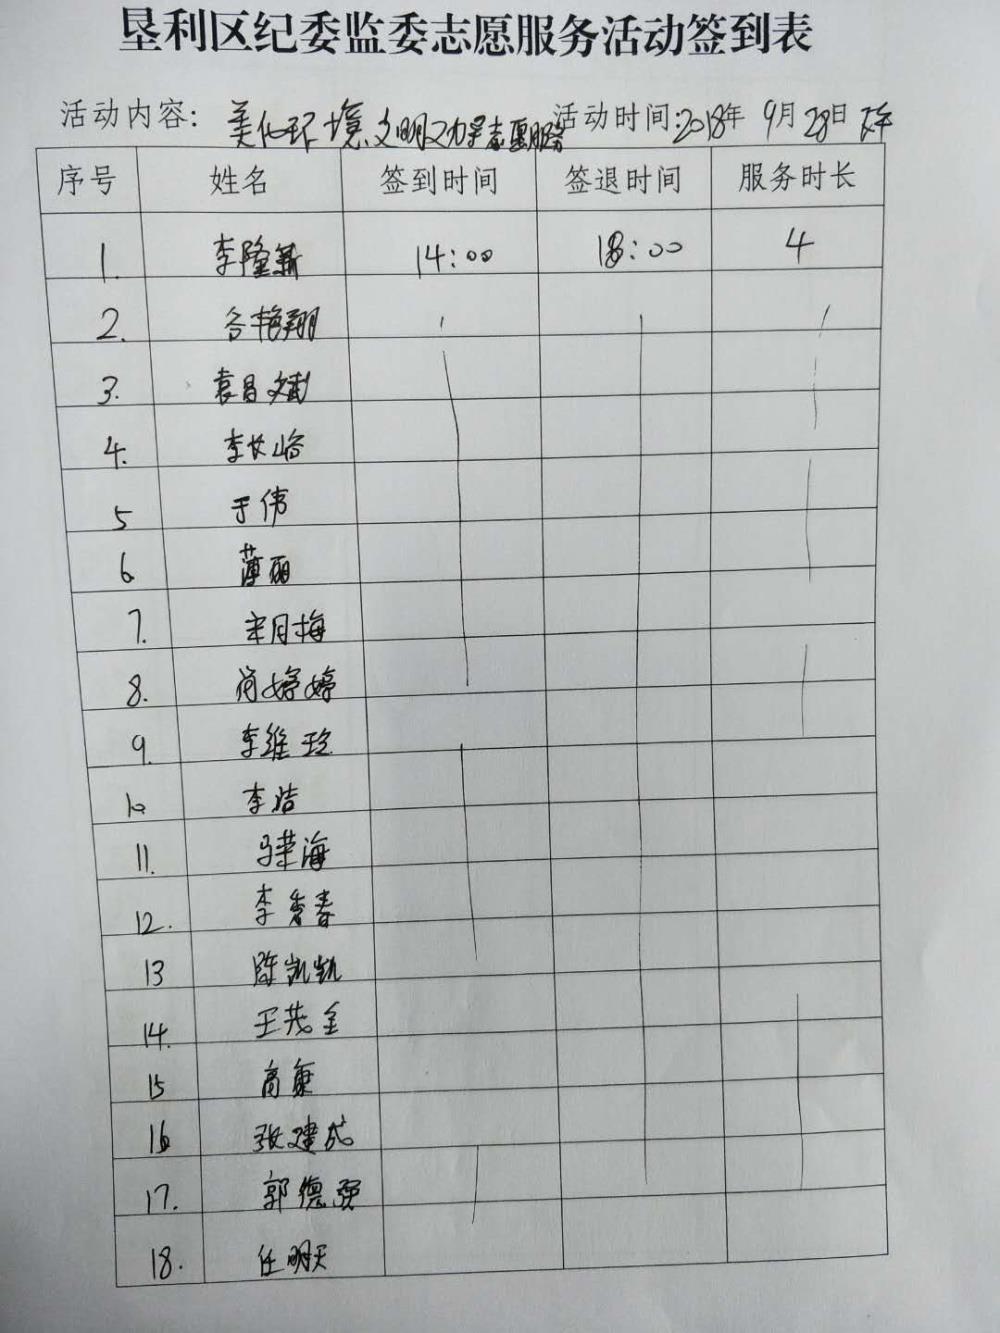 垦利区纪委监委志愿服务活动签到表
活动内容: 美化环境 文明 志愿服务 活动时间:2018年 9月 28日 下午
序号 姓名 签到时间 签退时间 服务时长
1. 李隆新 14:00 18:00 4
2. 谷艳翔
3. 袁昌斌
4. 李长峪
5 于伟
6 薄丽
7. 宋月梅
8. 尚婷婷
9. 李维玲
10 李洁
11. 马荣海
12. 李秀春
13 陈凯凯
14. 王茂全
15 高康
16 张建成
17. 郭德强
18. 任明天